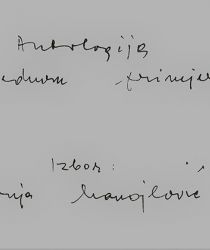 Antologija
ednom primjer
Izbor:
nja Manojlović